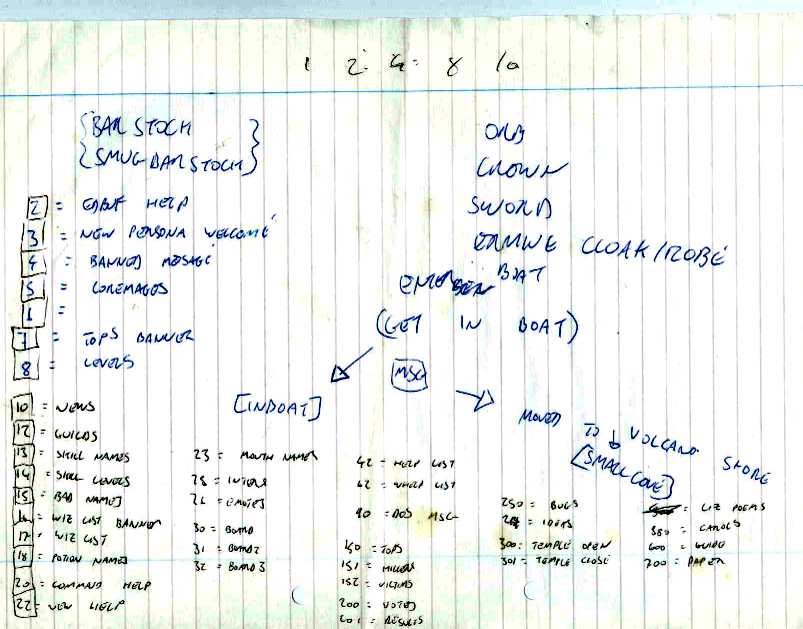 1 2. 4. 8 10
{BAR STOCK
SMUG BAR STOCK}
2 = EDBUF HELP
3 = NEW PERSONA WELCOME
4 = BANNED MESSAGE
5 = COREMAGES
6 =
7 = TOPS BANNER
8 = LEVELS
10 = NEWS
12 = GUILDS
13 = SKILL NAMES
14 = SKILL LEVELS
15 = BAD NAMES
16 = WIZ LIST BANNER
17 = WIZ LIST
18 = POTION NAMES
20 = COMMAND HELP
22 = NEW HELP
ORB
CROWN
SWORD
ERMINE CLOAK/ROBE
ENTER BOAT
(GET IN BOAT)
MSG
[INBOAT]
MOVED TO VOLCANO SHORE
[SMALL COVE]
23 = MONTH NAMES
25 = INTENS
26 = EMOTES
30 = BOARD
31 = BOARD2
32 = BOARD3
42 = HELP LIST
62 = WHELP LIST
90 = DOS MSG
150 = TOPS
151 = KILLERS
152 = VICTIMS
200 = VOTES
201 = RESULTS
250 = BUGS
251 = IDEAS
300 = TEMPLE OPEN
301 = TEMPLE CLOSE
= LIZ POEMS
580 = CAROLS
600 = GUIDE
700 = PAPER